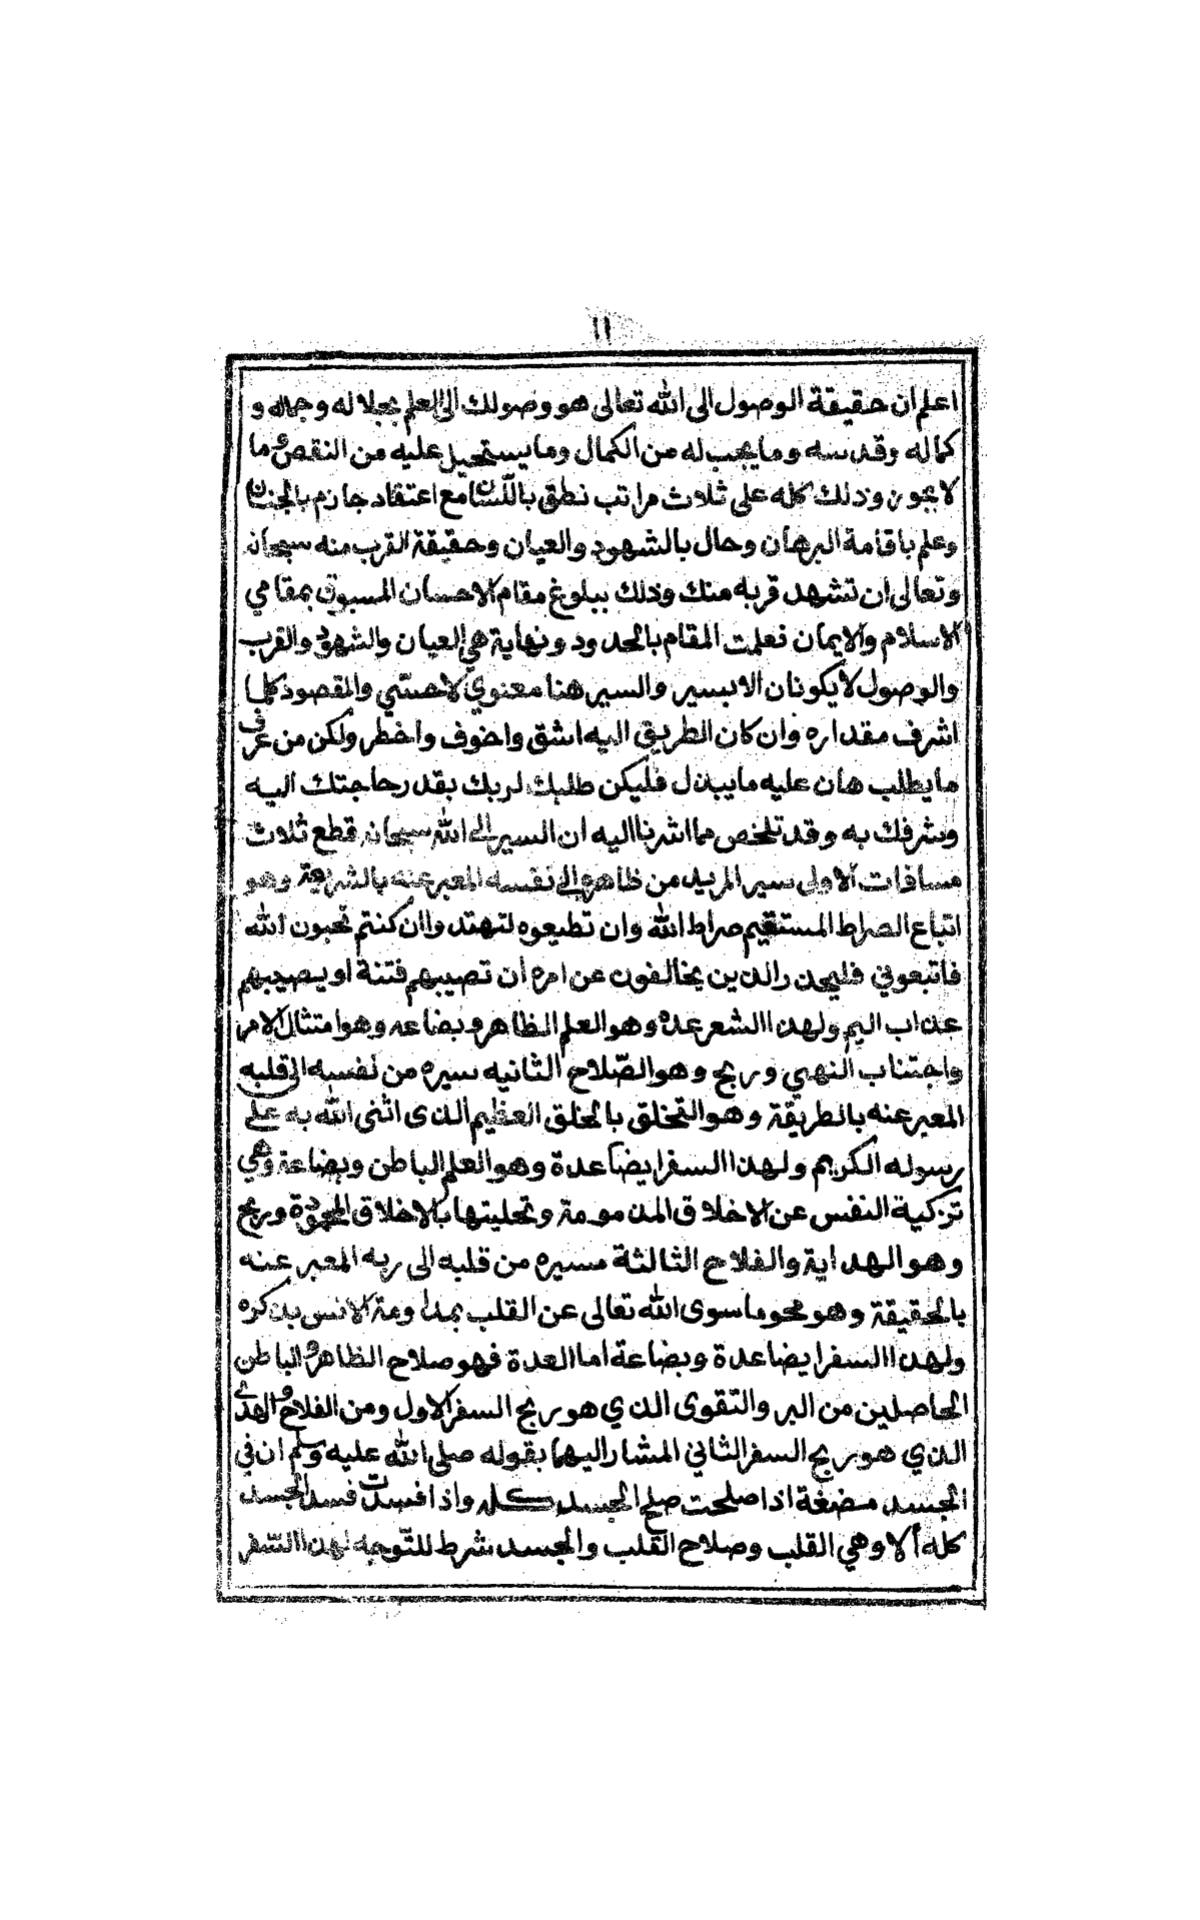 ١١
اعلم ان حقيقة الوصول الى الله تعالى هو وصولك الى العلم بجلاله وجماله و
كماله وقدسه وما يجب له من الكمال وما يستحيل عليه من النقص وما
لا يجوز وذلك كله على ثلاث مراتب نطق باللّسان مع اعتقاد جازم بالجنان
وعلم باقامة البرهان وحال بالشهود والعيان وحقيقة القرب منه سبحانه
وتعالى ان تشهد قربه منك وذلك ببلوغ مقام الاحسان المسبوق بمقامي
الاسلام والايمان فعلمت المقام بالحدود ونهاية هي العيان والشهود والقرب
والوصول لا يكونان الا بسير والسير هنا معنوي لا حسّي والمقصود كلما
اشرف مقداره وان كان الطريق اليه اشق واخوف واخطر ولكن من عرف
ما يطلب هان عليه ما يبذل فليكن طلبك لربك بقدر حاجتك اليه
وشرفك به وقد تلخص مما اشرنا اليه ان السير الى الله سبحانه قطع ثلاث
مسافات الاولى سير المريد من ظاهره الى نفسه المعبر عنه بالشريعة وهو
اتباع الصراط المستقيم صراط الله وان تطيعوه لتهتدوا ان كنتم تحبون الله
فاتبعوني فليحذر الذين يخالفون عن امره ان تصيبهم فتنة او يصيبهم
عذاب اليم ولهذا الشعر عده وهو العلم الظاهر وبضاعه وهو امتثال الامر
واجتناب النهي وربح وهو الصّلاح الثانيه سيره من نفسه الى قلبه
المعبر عنه بالطريقة وهو التخلق بالخلق العظيم الذى اثنى الله به على
رسوله الكريم ولهذا السفر ايضا عدة وهو العلم الباطن وبضاعة وهي
تزكية النفس عن الاخلاق المذمومة وتحليتها بالاخلاق المحمودة وربح
وهو الهداية والفلاح الثالثة مسيره من قلبه الى ربه المعبر عنه
بالحقيقة وهو محو ما سوى الله تعالى عن القلب بمداومة الانس بذكره
ولهذا السفر ايضا عدة وبضاعة اما العدة فهو صلاح الظاهر والباطن
الحاصلين من البر والتقوى الذي هو ربح السفر الاول ومن الفلاح والهدى
الذي هو ربح السفر الثاني المشار اليهما بقوله صلى الله عليه وسلم ان في
الجسد مضغة اذا صلحت صلح الجسد كله واذا فسدت فسد الجسد
كله ألا وهي القلب وصلاح القلب والجسد شرط للتّوجه لهذا السّفر